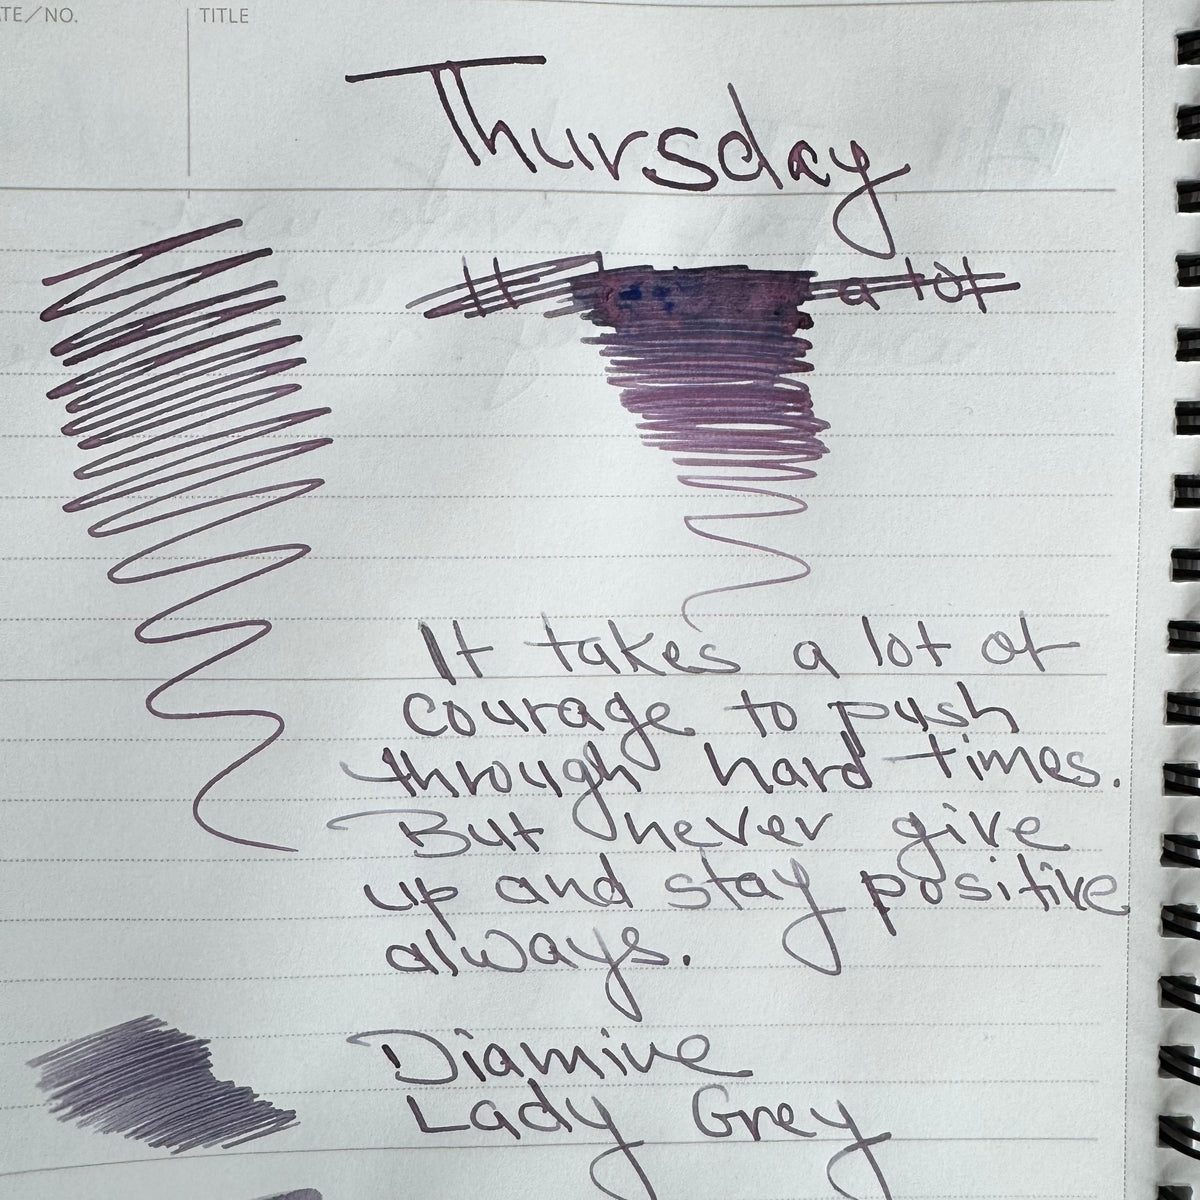 TE/NO.
TITLE
Thursday
It a lot
It takes a lot of
courage to push
through hard times.
But never give
up and stay positive
always.
Diamine
Lady Grey